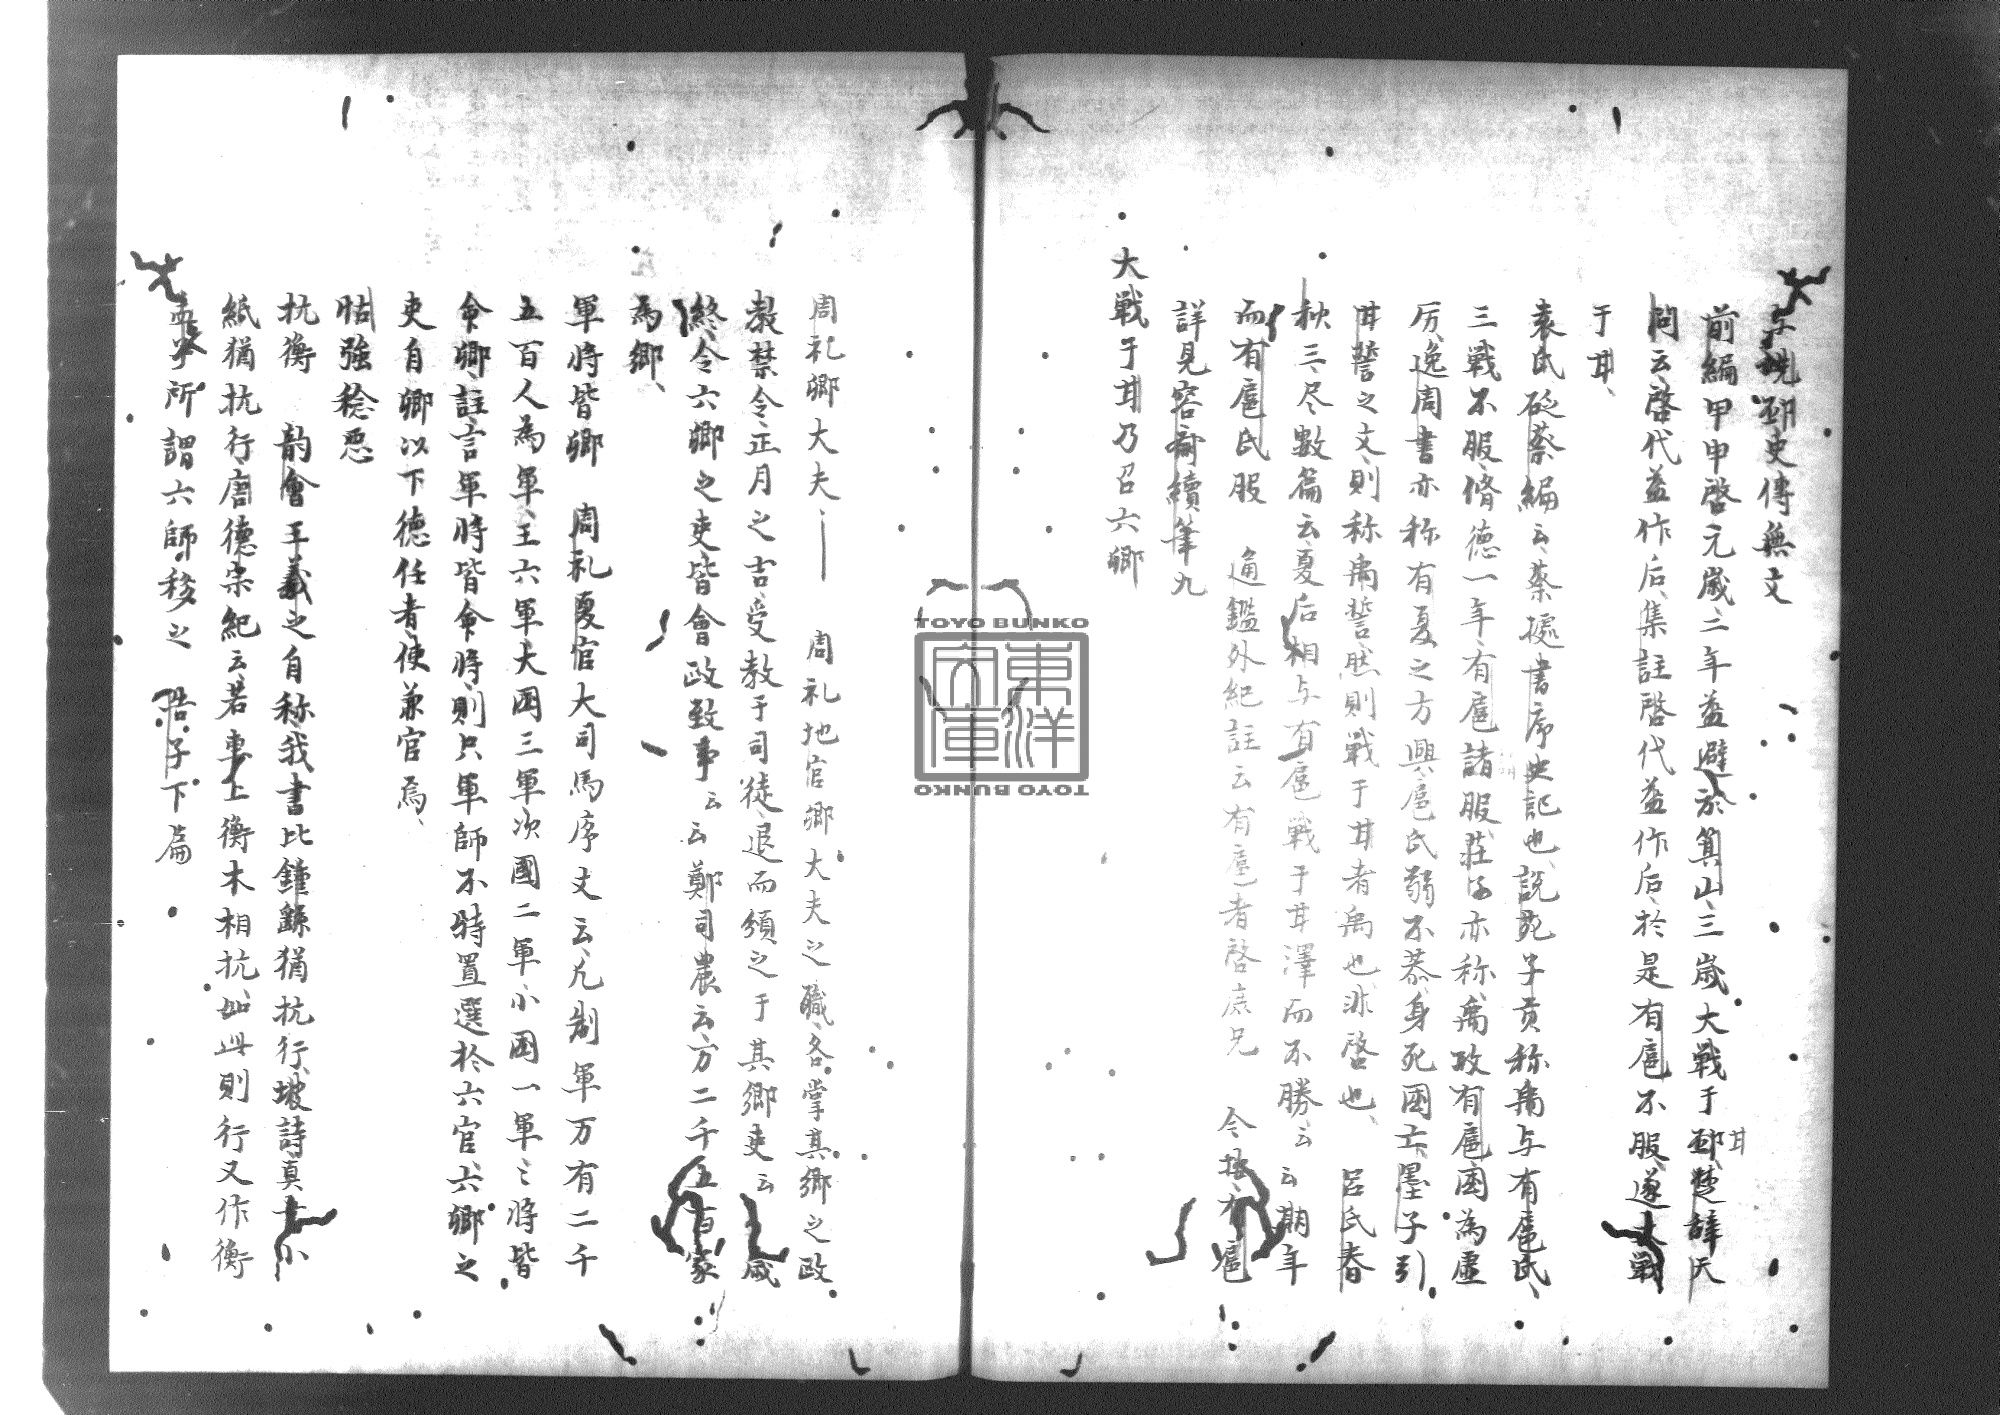 与覘邳史傳無文
前編甲申啓元歲、二年益避於箕山、三歲大戰于邳、楚辭天
甘
問云、啓代益作后、集註啓代益作后、於是有扈不服、遂大戰
于甘、
袁氏砭蔡編云、蔡據書序史記也、說苑子貢称禹与有扈氏、
三戰不服、脩德一年、有扈請服、莊子亦称、禹攻有扈国為虛
厉、逸周書亦称有夏之方興扈氏弱不恭身死國亡、墨子引
甘誓之文、則称禹誓、然則戰于甘者禹也、非啓也、 呂氏春
秋三、尽數篇云、夏后相与有扈戰于甘澤而不勝、云云期年
而有扈氏服 通鑑外紀註云有扈者啓庶兄 今按、有扈
詳見容齋續筆九
大戰于甘乃召六卿
周礼卿大夫、— 周礼地官鄉大夫之職、各掌其鄉之政
教禁令、正月之吉、受教于司徒、退而頒之于其鄉吏云云歲
終、令六鄉之吏皆會政致事云云鄭司農云、万二千五百家
為鄉、
軍將皆卿 周礼夏官大司馬序文云、凡制軍万有二千
五百人為軍、王六軍大国三軍次國二軍、小国一軍、軍將皆
命卿、註言軍將皆命卿、則凡軍帥不特置選於六官、六卿之
吏自卿以下德任者、使兼官焉、
怙強稔惡
抗衡 韵會王羲之自称我書比鍾繇猶抗行、坡詩真書小
紙猶抗行唐德宗紀云、若車上衡木相抗、如此則行又作衡
孟子所謂六師移之 告子下篇
TOYO BUNKO
東洋文庫
TOYO BUNKO